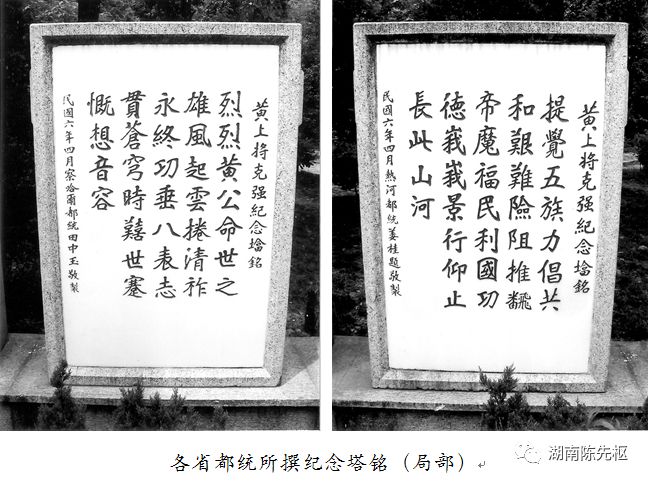 黄上將克强紀念墖銘
烈烈黄公命世之
雄風起雲捲清祚
永終功垂八表志
貫蒼穹時囏世蹇
慨想音容
民國六年四月察哈爾都統田中玉敬製
黄上將克强紀念墖銘
提覺五族力倡共
和艱難險阻推飜
帝魔福民利國功
德峩峩景行仰止
長此山河
民國六年四月熱河都統姜桂題敬製
各省都统所撰纪念塔铭（局部）
湖南陈先枢